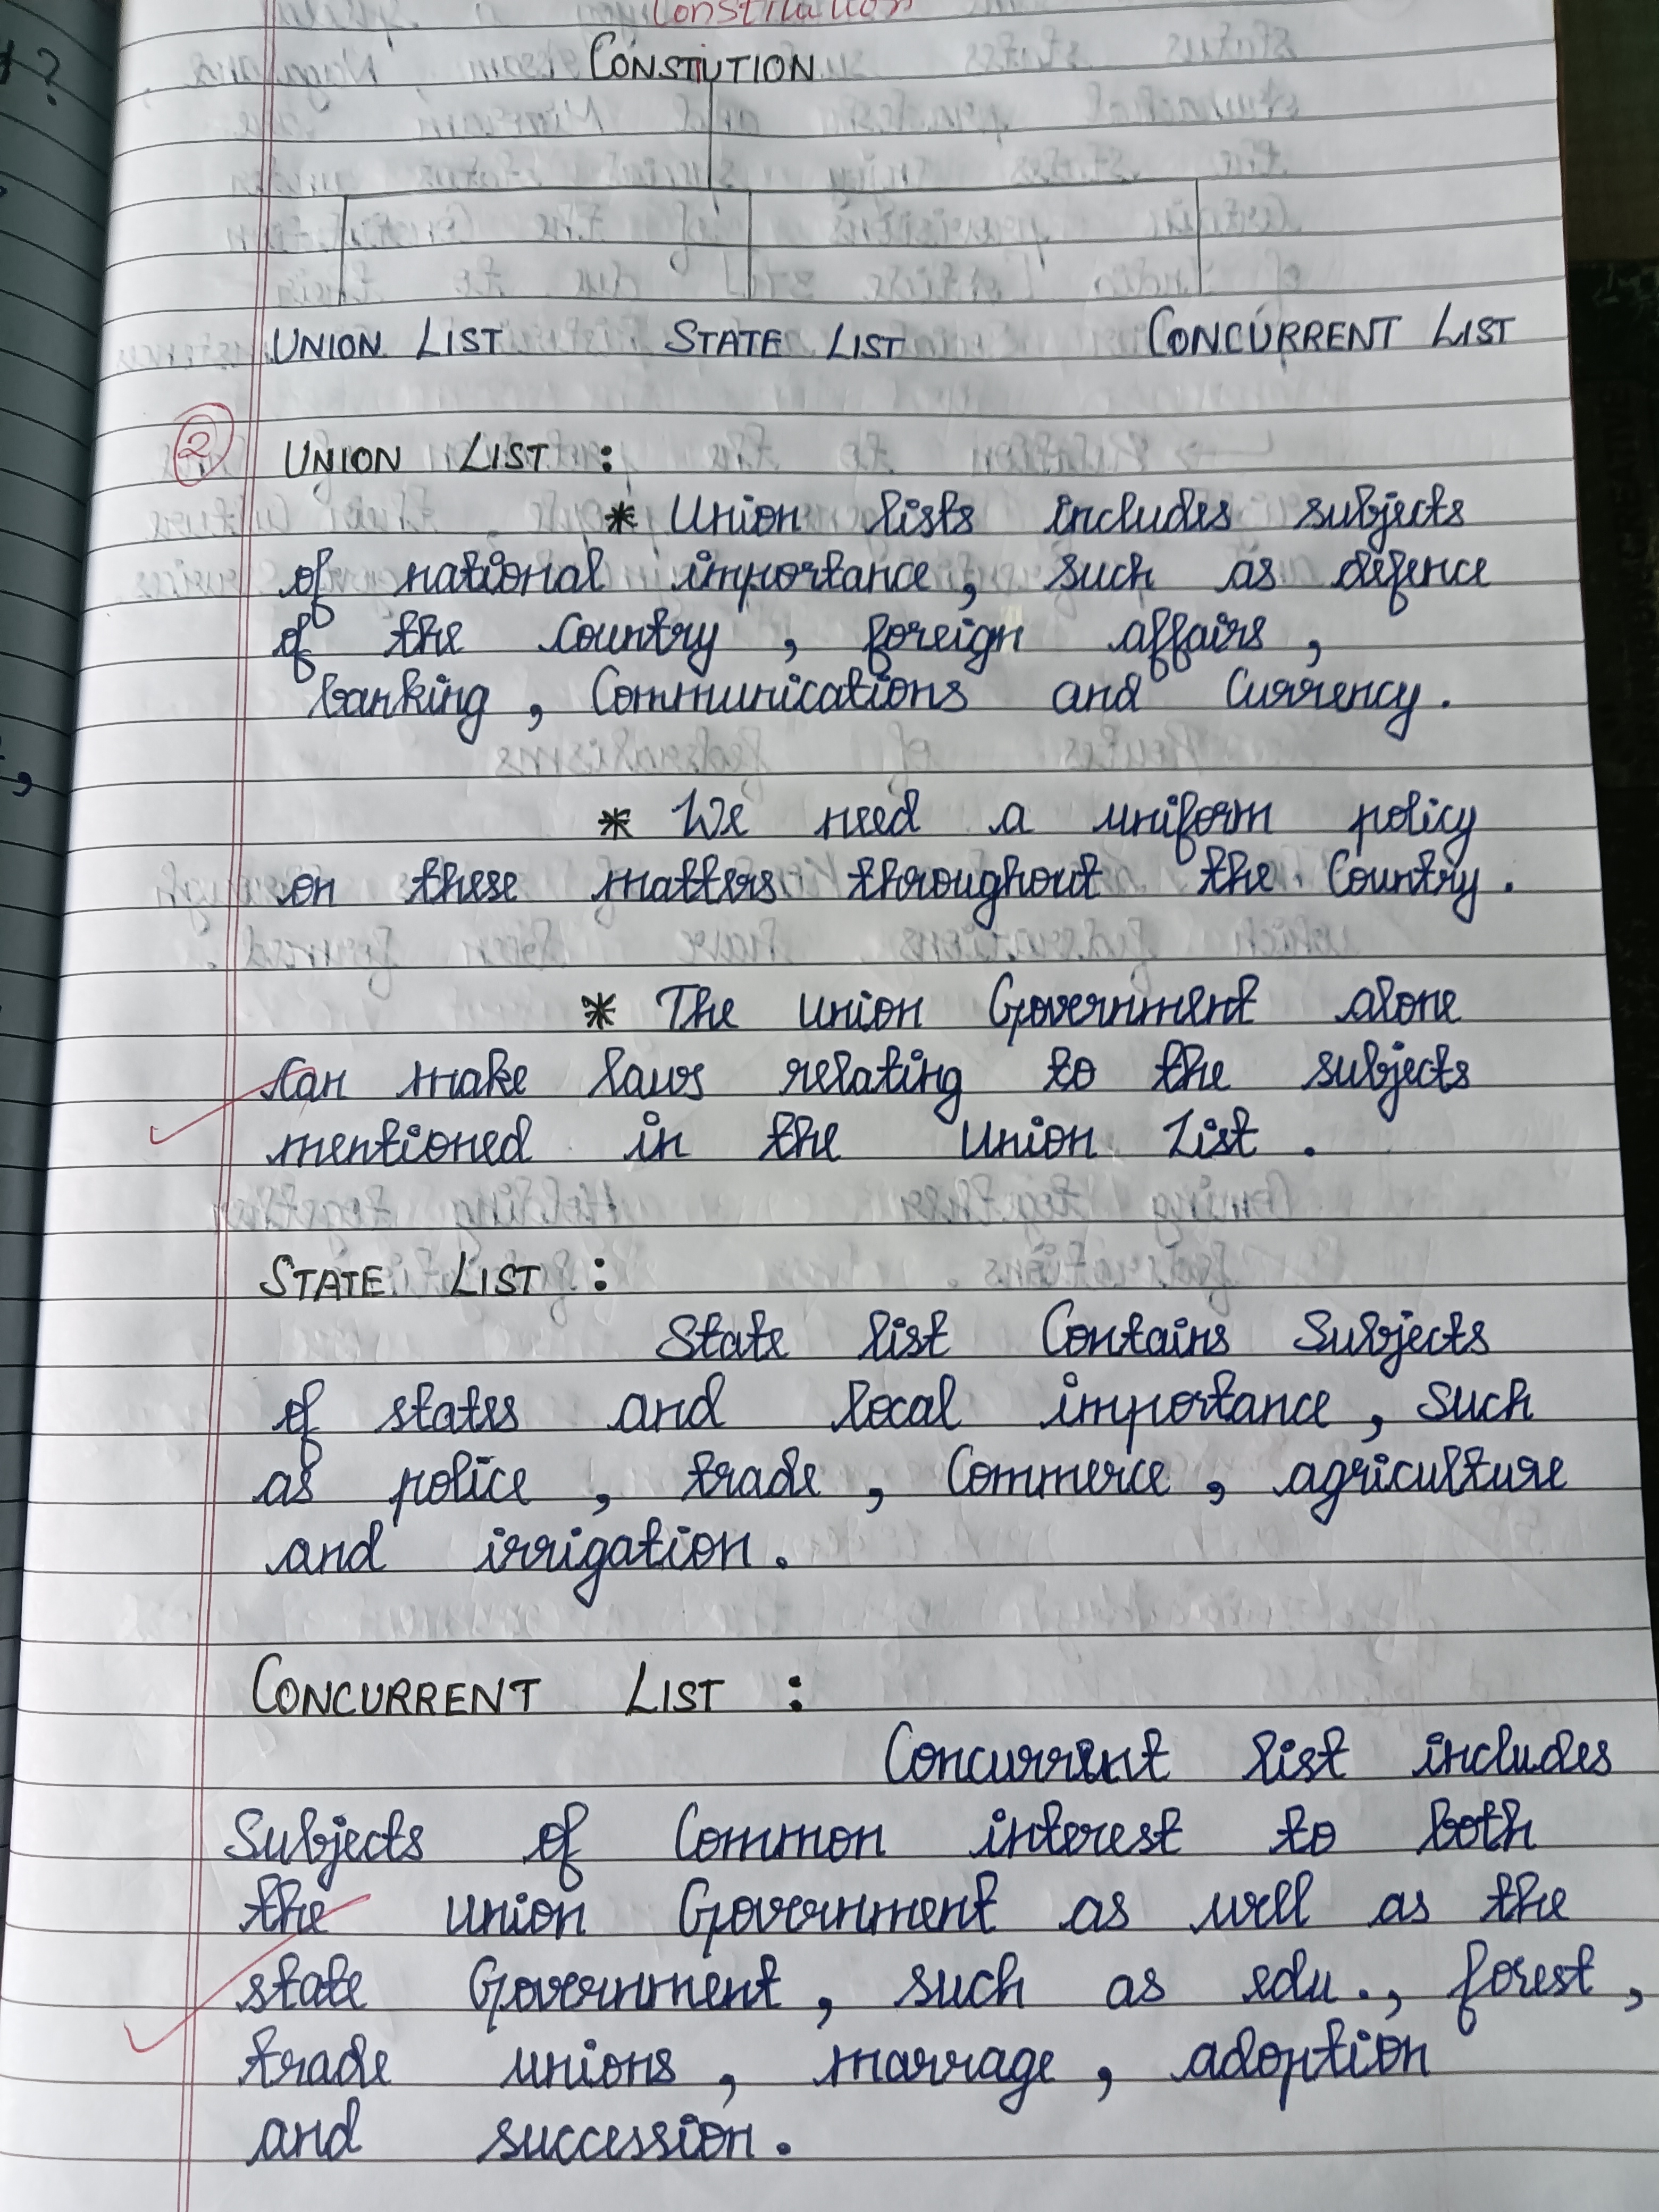 Constitution
CONSTIUTION
UNION LIST STATE LIST CONCURRENT LIST
② UNION LIST :
* Union lists includes subjects
of national importance, such as defence
of the Country , foreign affairs ,
banking , Communications and Currency .
* We need a uniform policy
on these matters throughout the Country .
* The union Government alone
Can make laws relating to the subjects
mentioned in the Union List .
STATE LIST :
State list Contains Subjects
of states and local importance , Such
as police , trade , Commerce , agriculture
and irrigation .
CONCURRENT LIST :
Concurrent list includes
Subjects of Common interest to both
the union Government as well as the
state Government , such as edu . , forest ,
trade unions , marrage , adoption
and succession .